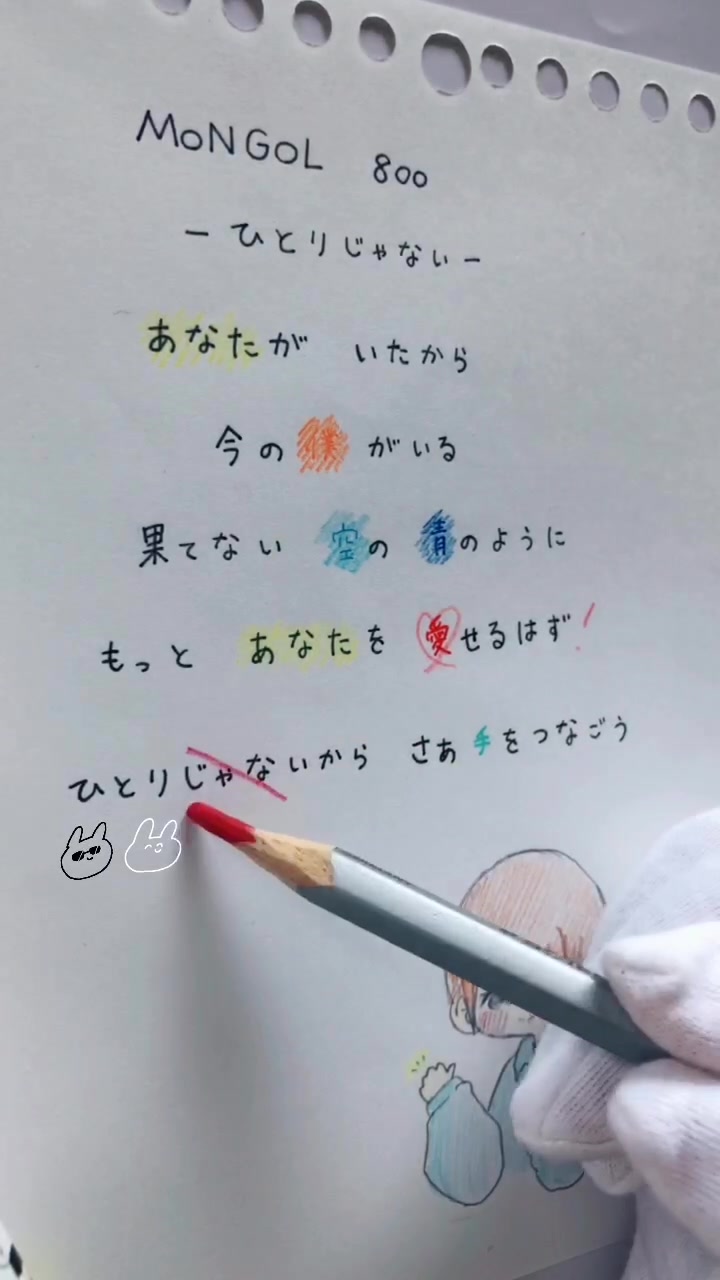 MONGOL 800
ー ひとりじゃない ー
あなたが いたから
今の僕がいる
果てない 空の 青のように
もっと あなたを 愛せるはず!
ひとりじゃないから さあ 手をつなごう